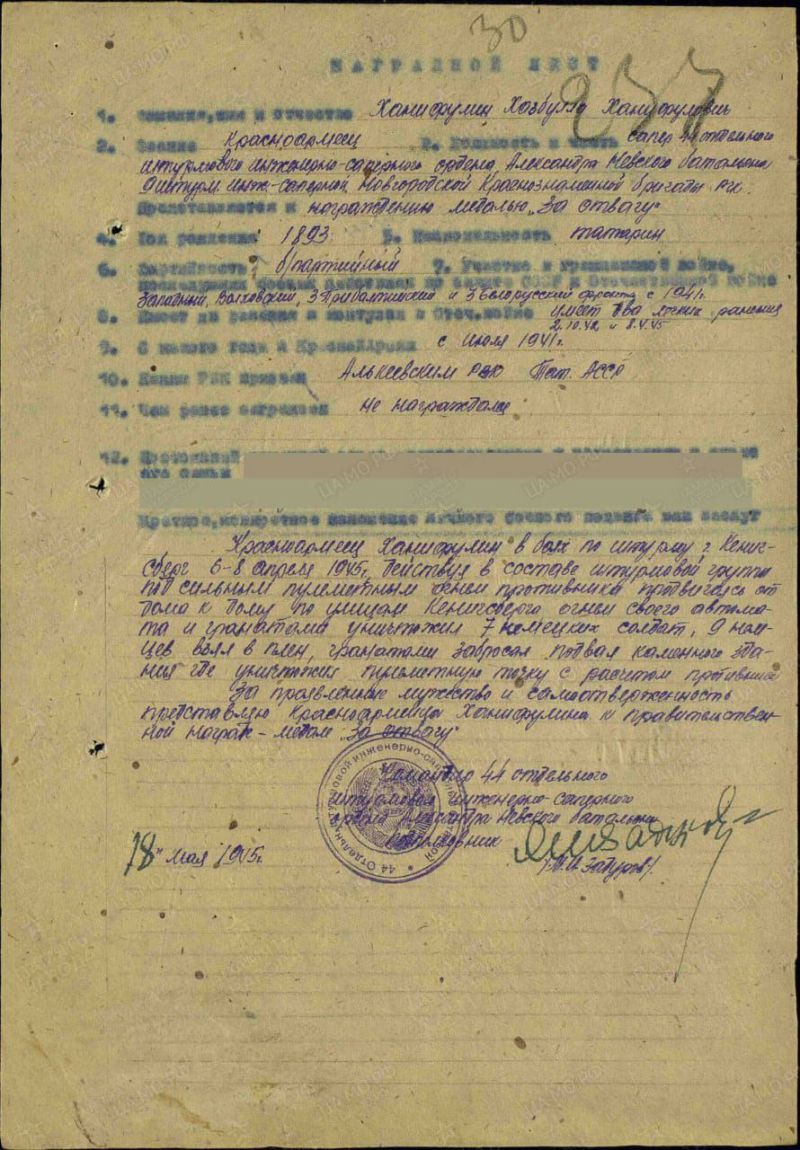 30
НАГРАДНОЙ ЛИСТ
237
1. Фамилия, имя и отчество Ханифулин Хазбулла Ханифулович
2. Звание Красноармеец 3. Должность и часть сапер 44 отдельного
штурмового инженерно-саперного ордена Александра Невского батальона
9 штурм. инж-саперной Новгородской Краснознаменной бригады РГК.
Представляется к награждению медалью „За отвагу"
4. Год рождения 1893 5. Национальность татарин
6. Партийность б/партийный 7. Участие в гражданской войне,
последующих боевых действиях по защите СССР и отечественной войне
Западный, Волховский, 3 Прибалтийский и 3 Белорусский фронта с 1941г.
8. Имеет ли ранения и контузии в Отеч.войне имеет два легких ранения
2.10.42. и 8.4.45
9. С какого года в Красной Армии с июля 1941г.
10. Каким РВК призван Алькеевским РВК Тат. АССР
11. Чем ранее награжден не награждался
12. Постоянный
его семьи
Краткое, конкретное изложение личного боевого подвига или заслуг
Красноармеец Ханифулин в боях по штурму г. Кениг-
сберг 6-8 апреля 1945г. действуя в составе штурмовой группы
под сильным пулеметным огнем противника продвигаясь от
дома к дому по улицам Кенигсберга огнем своего автома-
та и гранатами уничтожил 7 немецких солдат, 9 нем-
цев взял в плен, гранатами забросал подвал каменного зда-
ния где уничтожил пулеметную точку с расчетом противника
За проявленные мужество и самоотверженность
представляю Красноармейца Ханифулина к правительствен-
ной награде - медали „За отвагу"
Командир 44 отдельного
штурмового инженерно-саперного
ордена Александра Невского батальона
18" мая 1945г.